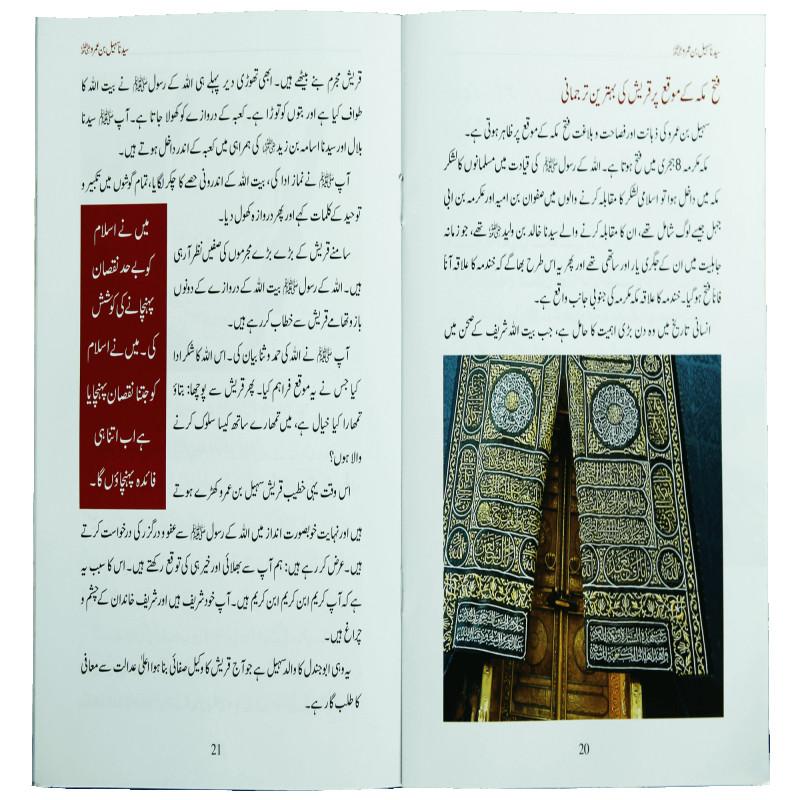 سیدنا سہیل بن عمرو رضی اللہ عنہ
فتح مکہ کے موقع پر قریش کی بہترین ترجمانی
سہیل بن عمرو کی ذہانت اور فصاحت و بلاغت فتح مکہ کے موقع پر ظاہر ہوتی ہے۔
مکہ مکرمہ 8 ہجری میں فتح ہوتا ہے۔ اللہ کے رسول ﷺ کی قیادت میں مسلمانوں کا لشکر
مکہ میں داخل ہوا تو اسلامی لشکر کا مقابلہ کرنے والوں میں صفوان بن امیہ اور عکرمہ بن ابی
جہل جیسے لوگ شامل تھے، ان کا مقابلہ کرنے والے سیدنا خالد بن ولید رضی اللہ عنہ تھے، جو زمانہ
جاہلیت میں ان کے جگری یار اور ساتھی تھے اور پھر یہ اس طرح بھاگے کہ خندمہ کا علاقہ آناً
فاناً فتح ہو گیا۔ خندمہ کا علاقہ مکہ مکرمہ کی جنوبی جانب واقع ہے۔
انسانی تاریخ میں وہ دن بڑی اہمیت کا حامل ہے، جب بیت اللہ شریف کے صحن میں
20
سیدنا سہیل بن عمرو رضی اللہ عنہ
قریش مجرم بنے بیٹھے ہیں۔ ابھی تھوڑی دیر پہلے ہی اللہ کے رسول ﷺ نے بیت اللہ کا
طواف کیا ہے اور بتوں کو توڑا ہے۔ کعبہ کے دروازے کو کھولا جاتا ہے۔ آپ ﷺ سیدنا
بلال اور سیدنا اسامہ بن زید رضی اللہ عنہم کی ہمراہی میں کعبہ کے اندر داخل ہوتے ہیں۔
آپ ﷺ نے نماز ادا کی، بیت اللہ کے اندرونی حصے کا چکر لگایا، تمام گوشوں میں تکبیر و
توحید کے کلمات کہے اور پھر دروازہ کھول دیا۔
سامنے قریش کے بڑے بڑے مجرموں کی صفیں نظر آ رہی
ہیں۔ اللہ کے رسول ﷺ بیت اللہ کے دروازے کے دونوں
بازو تھامے قریش سے خطاب کر رہے ہیں۔
آپ ﷺ نے اللہ کی حمد و ثنا بیان کی۔ اس اللہ کا شکر ادا
کیا جس نے یہ موقع فراہم کیا۔ پھر قریش سے پوچھا: بتاؤ
تمھارا کیا خیال ہے، میں تمھارے ساتھ کیسا سلوک کرنے
والا ہوں؟
اس وقت یہی خطیب قریش سہیل بن عمرو کھڑے ہوتے
ہیں اور نہایت خوبصورت انداز میں اللہ کے رسول ﷺ سے عفو و درگزر کی درخواست کرتے
ہیں۔ عرض کر رہے ہیں: ہم آپ سے بھلائی اور خیر ہی کی توقع رکھتے ہیں۔ اس کا سبب یہ
ہے کہ آپ کریم ابن کریم ابن کریم ہیں۔ آپ خود شریف ہیں اور شریف خاندان کے چشم و
چراغ ہیں۔
یہ وہی ابو جندل کا والد سہیل ہے جو آج قریش کا وکیل صفائی بنا ہوا اعلیٰ عدالت سے معافی
کا طلب گار ہے۔
میں نے اسلام
کو بے حد نقصان
پہنچانے کی کوشش
کی۔ میں نے اسلام
کو جتنا نقصان پہنچایا
ہے اب اتنا ہی
فائدہ پہنچاؤں گا۔
21